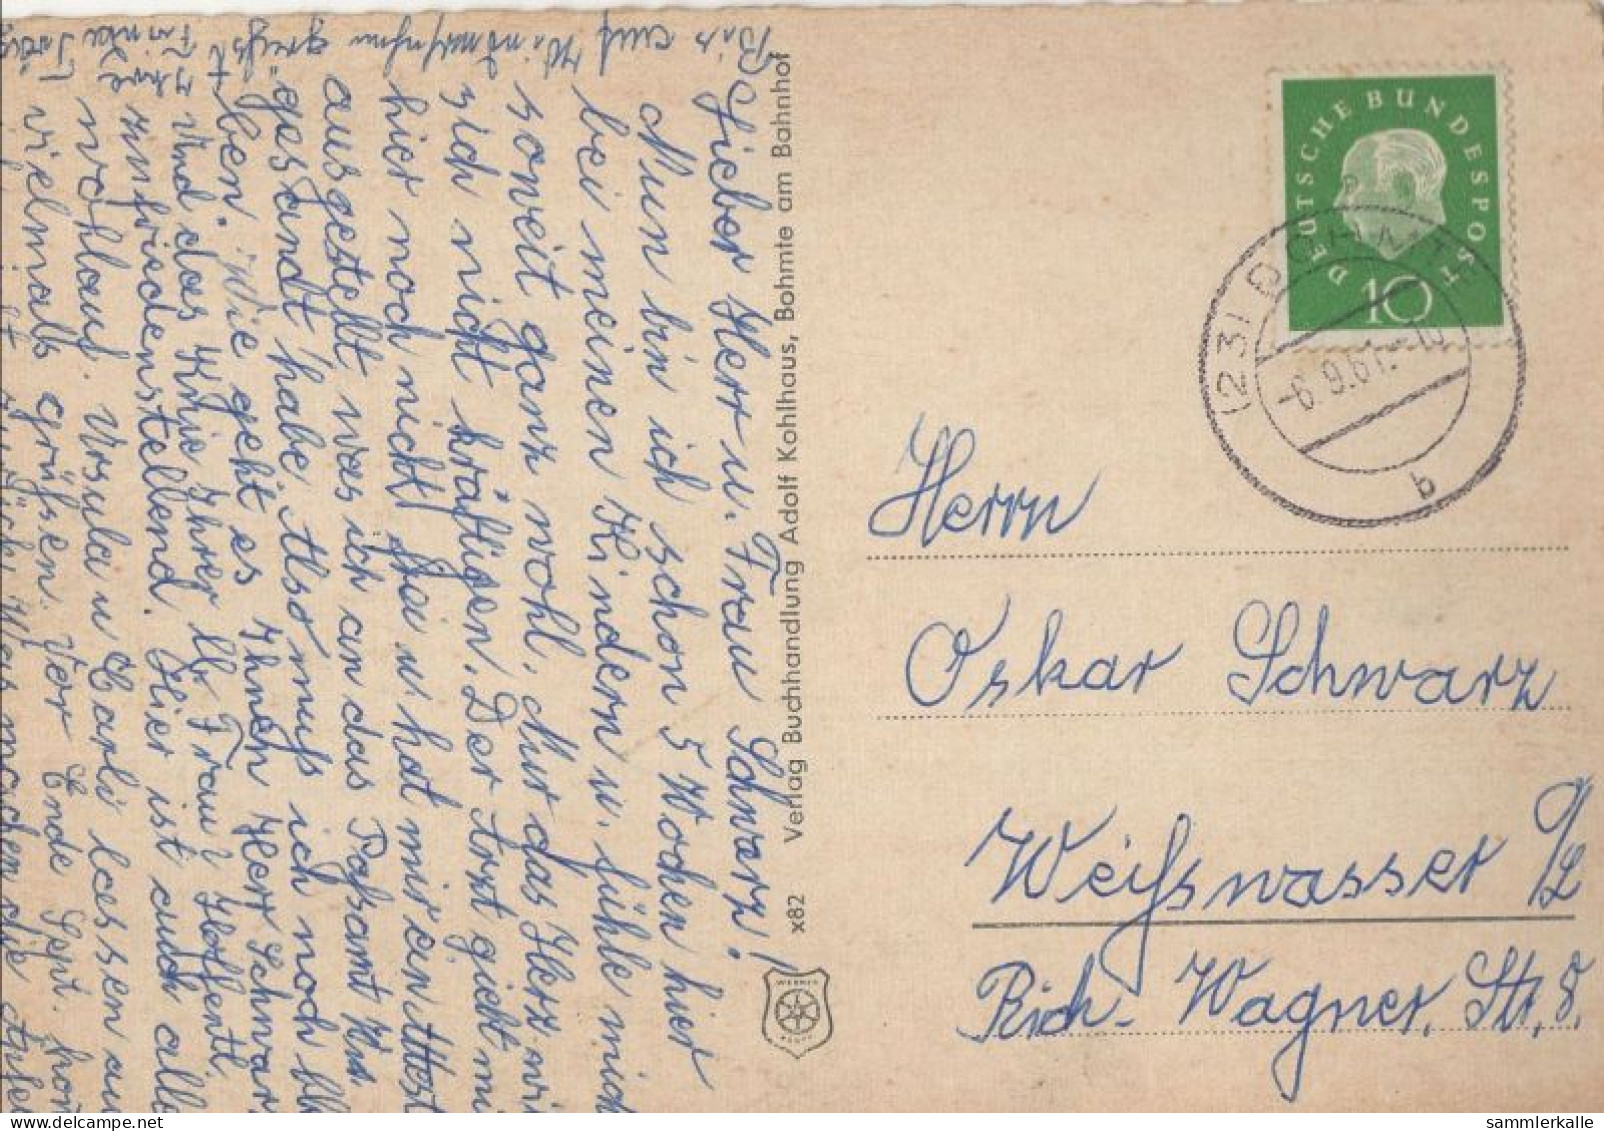 Lieber Herr u. Frau Schwarz!
Nun bin ich schon 5 Wochen hier
bei meinen Kindern u. fühle mich
soweit ganz wohl. Nur das Herz wi
sich nicht kräftigen. Der Arzt giebt mi
hier noch nicht frei u. hat mir ein Attest
ausgestellt was ich an das Paßamt
gesandt habe. Also muß ich noch
ben. Wie geht es Ihnen Herr Schwar
Und das Knie Ihrer lb. Frau? Hoffentl.
zufriedenstellend. Hier ist auch alle
wohlauf. Ursula u Carli lassen
vielmals grüßen. Vor Ende Sept.
Bis auf
grüßt
DEUTSCHE BUNDESPOST
10
(23) BOHMTE
-6.9.61.-18
b
Herrn
Oskar Schwarz
Weißwasser O/L
Rich.-Wagner. Str. 8.
x82 Verlag Buchhandlung Adolf Kohlhaus, Bohmte am Bahnhof